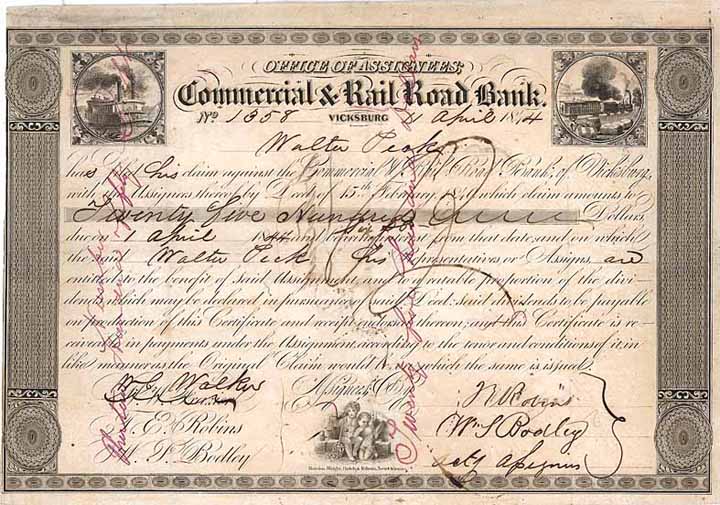 OFFICE OF ASSIGNEES;
Commercial & Rail Road Bank.
No 1358 VICKSBURG 1 April 1844
Walter Peck
has his claim against the Commercial & Rail Road Bank, of Vicksburg,
with the Assignees thereof by Deed 15th February which claim amounts to
Twenty five Hundred Dollars,
due on 1 April 1844 and from that date, and on which
the said Walter Peck his Representatives or Assigns are
entitled to the benefit of said Assignment, and to a ratable proportion of the divi-
dends which may be declared in pursuance of said Deed: said dividends to be payable
on production of this Certificate and receipt endorsed thereon, and this Certificate is re-
ceivable in payments under the Assignment, according to the tenor and conditions of it, in
like manner as the Original Claim would be on which the same is issued.
Walker
T. E. Robins
W. S. Bodley
Assignees
T E Robins
Wm S Bodley
actg Assignees
Twenty five